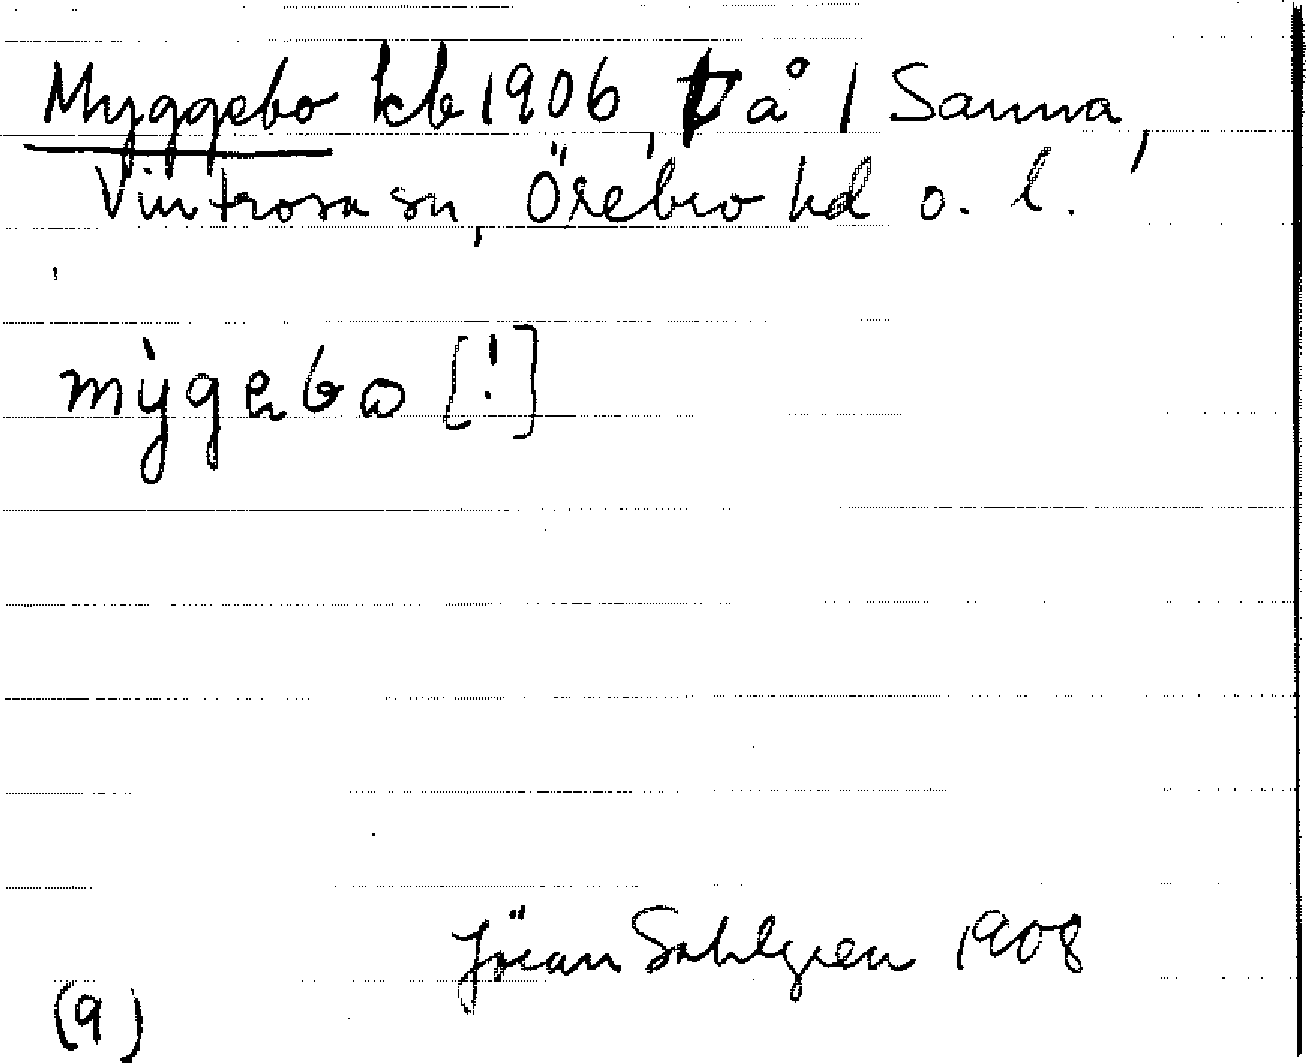 Myggebo kb 1906, T å 1 Sanna,
Vintrosa sn, Örebro hd o. l.
mỳgebo [!]
Jöran Sahlgren 1908
(9)